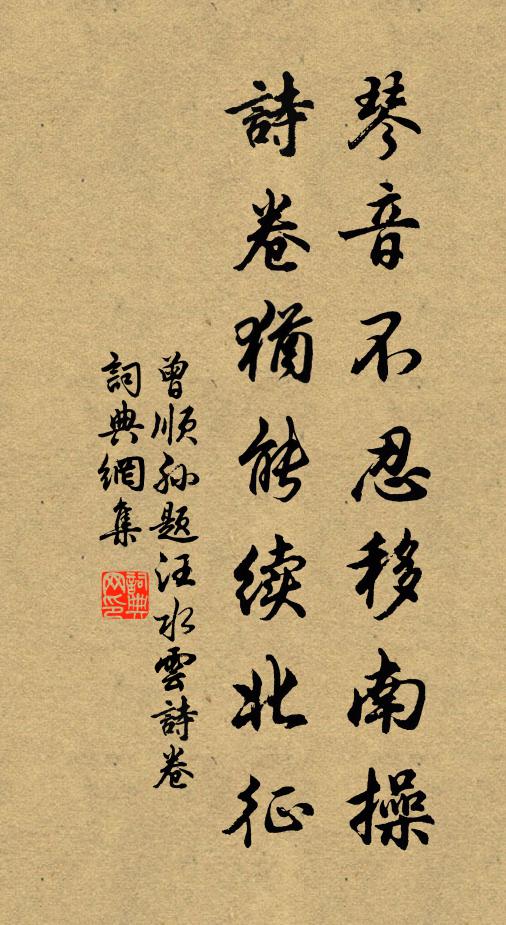 琴音不忍移南操
詩卷猶能續北征
曾順孫題汪水雲詩卷
詞典網集
詞典网印